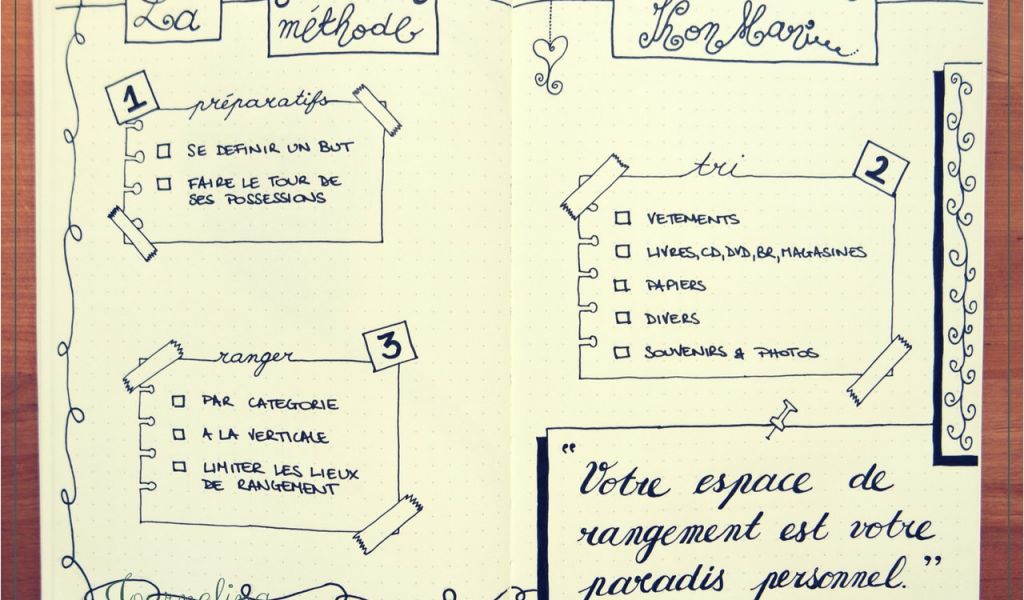 La méthode KhonMarie
1
préparatifs
SE DEFINIR UN BUT
FAIRE LE TOUR DE
SES POSSESSIONS
2
tri
VETEMENTS
LIVRES, CD, DVD, BR, MAGASINES
PAPIERS
DIVERS
SOUVENIRS & PHOTOS
3
ranger
PAR CATEGORIE
A LA VERTICALE
LIMITER LES LIEUX
DE RANGEMENT
“Votre espace de
rangement est votre
paradis personnel.”